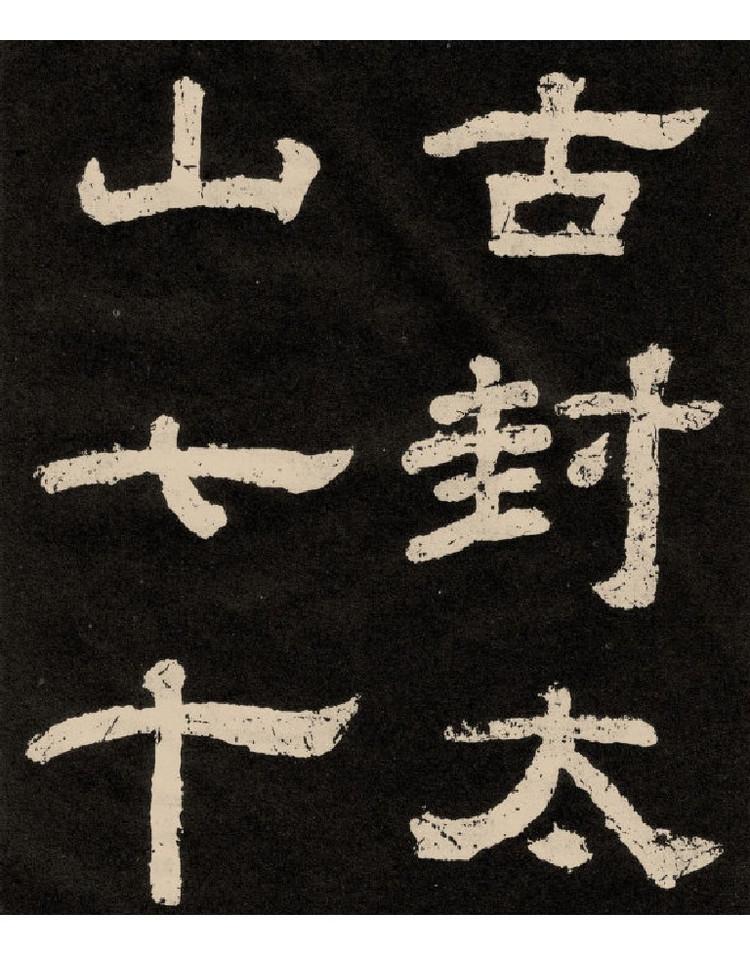 古封太
山七十